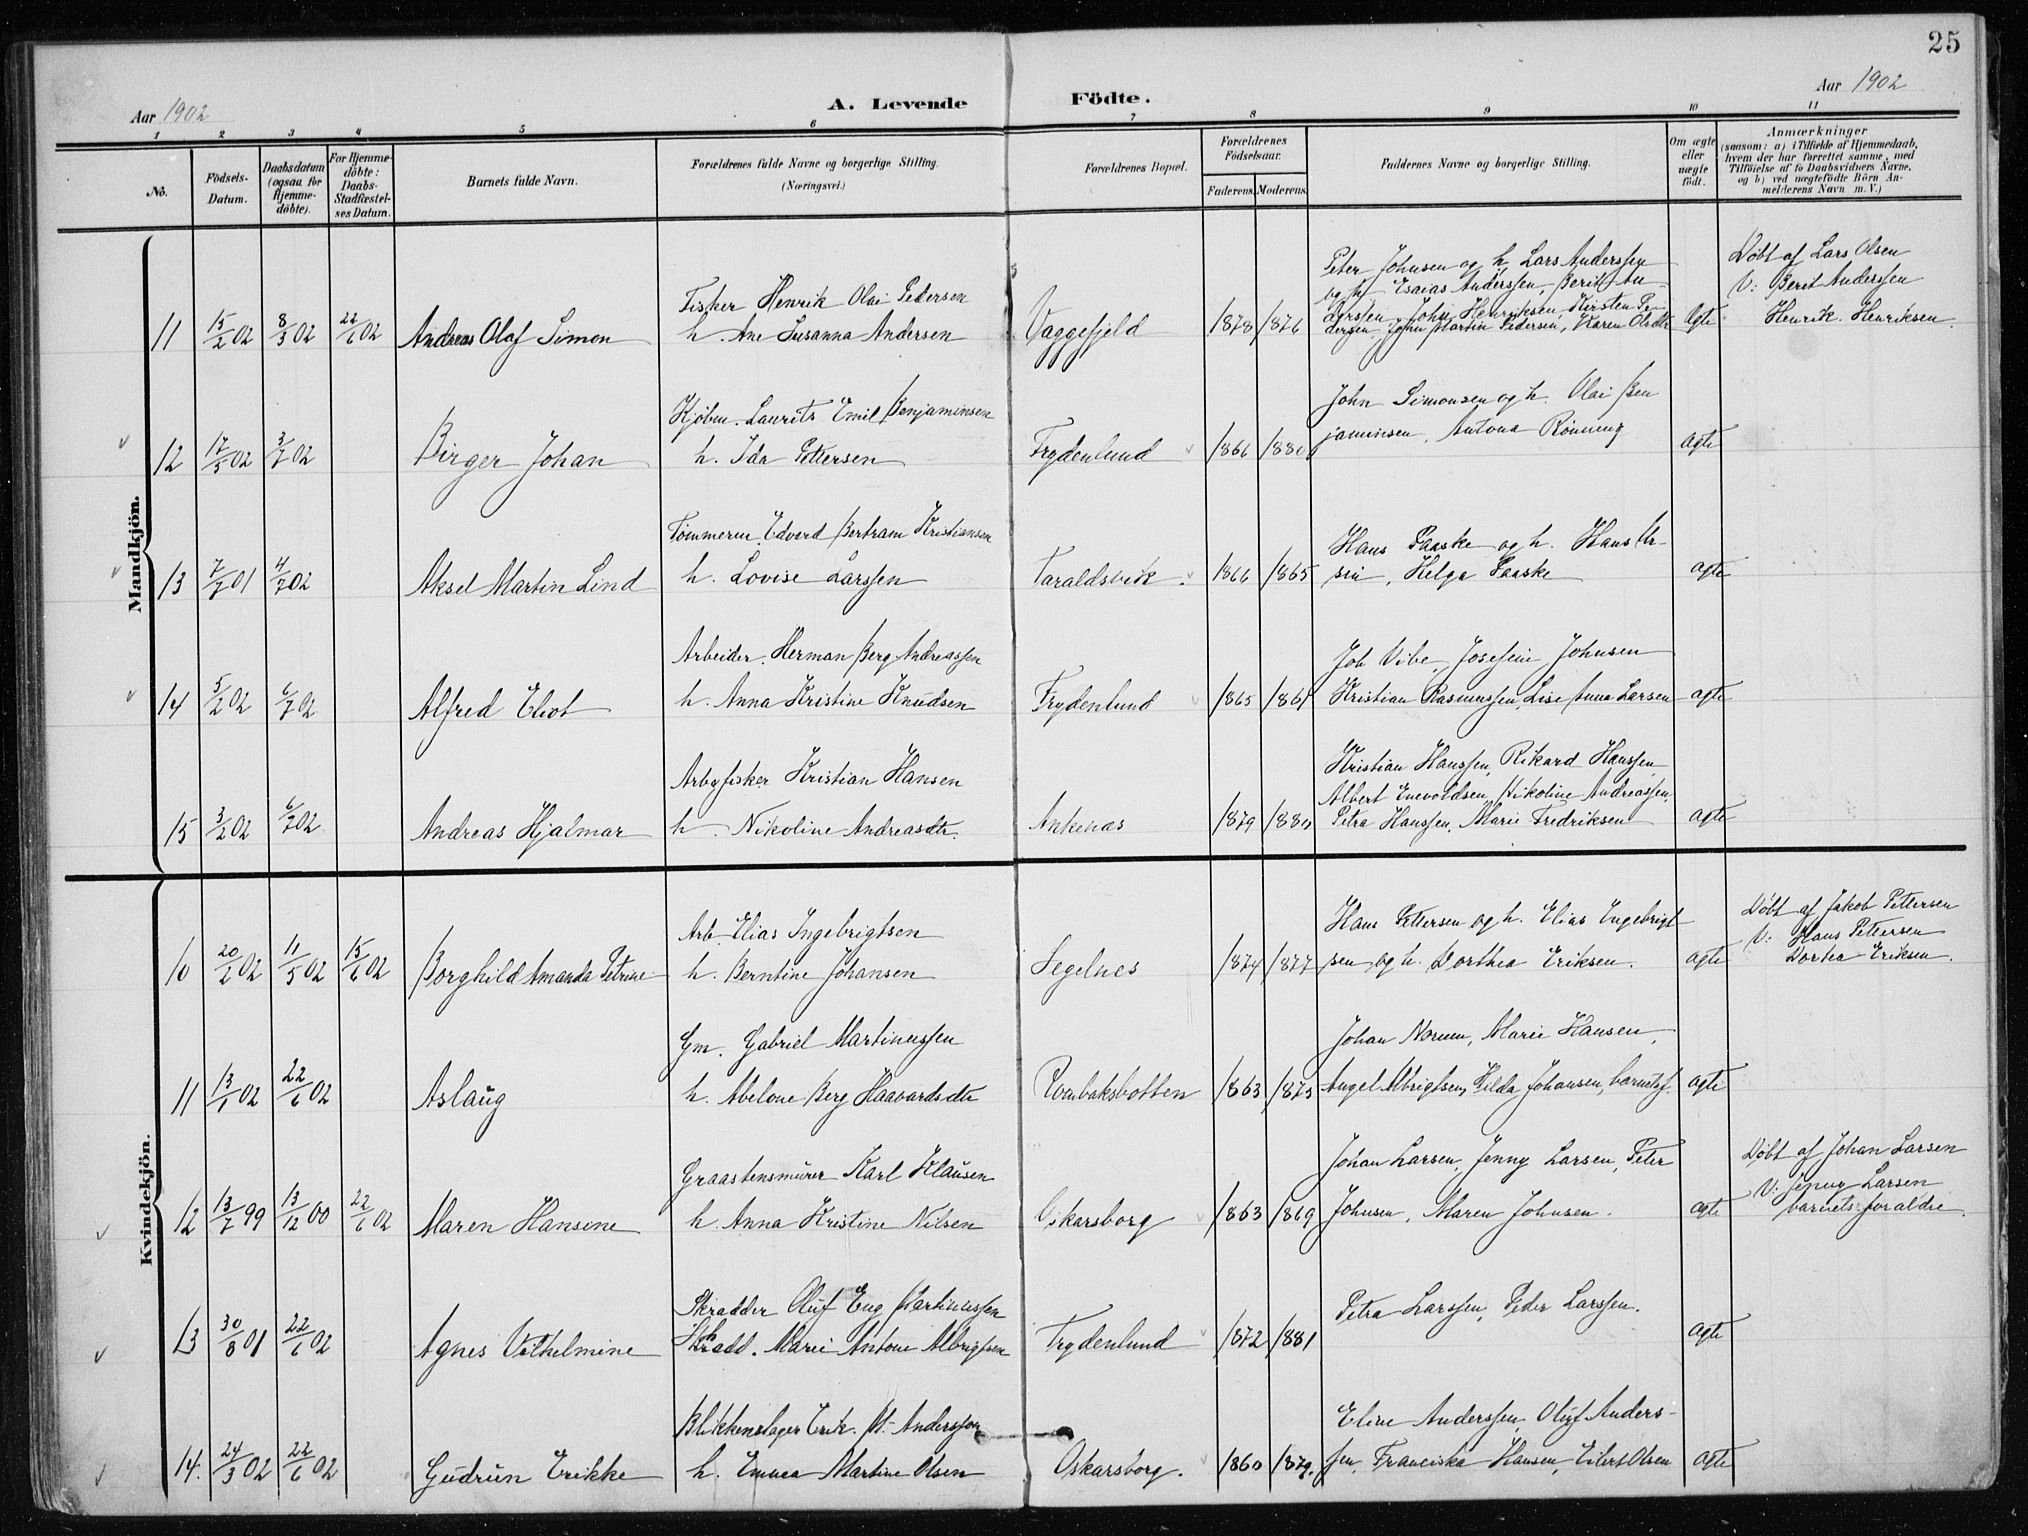 25
Aar 1902
A. Levende Födte.
Aar 1902
1 2 3 4 5 6 7 8 9 10 11
No.
Födsels-Datum.
Daabsdatum (ogsaa for Hjemme-döbte).
For Hjemme-döbte: Daabs-Stadfæstel-ses Datum.
Barnets fulde Navn.
Forældrenes fulde Navne og borgerlige Stilling.
(Næringsvei.)
Forældrenes Bopæl.
Forældrenes Födselsaar.
Faderens. Moderens.
Faddernes Navne og borgerlige Stilling.
Om ægte eller uægte födt.
Anmærkninger
(saasom: a) i Tilfælde af Hjemmedaab, hvem der har forrettet samme, med Tilföielse af to Daabsvidners Navne, og b) ved uægtefödte Börn An-melderens Navn m. V.)
Mandkjön.
11 15/2 02 8/3 02 22/6 02 Andreas Olaf Simon
Fisker Henrik Olai Pedersen
h. Ane Susanna Andersen
Vaggefjeld 1878 1876
Peter Johnsen og h. Lars Anderssen
og h. Esaias Anderssen, Berit An-
derssen, John Henriksen, Kirsten Pe-
dersen, John Martin Pedersen, Karen Olsdtr
Ægte
Døbt af Lars Olsen
V: Berit Anderssen
Henrik Henriksen.
12 17/5 02 3/7 02 Birger Johan
Kjøbm. Laurits Emil Benjaminsen
h. Ida Pettersen
Frydenlund 1866 1880
John Simonsen og h. Olai Ben
jaminsen, Antona Rønning
ægte
13 7/7 01 4/7 02 Aksel Martin Lind
Tømmerm. Edvard Bertram Kristiansen
h. Lovise Larssen
Taraldsvik. 1866 1865
Hans Paaske og h. Hans
sen, Helga Paaske
ægte
14 5/2 02 6/7 02 Alfred Eliot
Arbeider. Herman Berg Andreassen
h. Anna Kristine Knudsen
Frydenlund 1865 1861
Job Vibe, Josefine Johnsen
Kristian Rasmussen, Lise Anna Larsen
ægte
15 3/2 02 6/7 02 Andreas Hjalmar
Arb og fisker Kristian Hansen
h. Nikoline Andreasdtr.
Ankenæs 1879 1880
Kristian Hanssen, Rikard Hanssen
Albert Enevoldsen, Nikoline Andreassen,
Petra Hanssen, Marie Fredriksen
ægte
Kvindekjön.
10 20/2 02 11/5 02 15/6 02 Borghild Amanda Petrine
Arb. Elias Ingebrigtsen
h. Berntine Johansen
Segelnes 1874 1877
Hans Pettersen og h. Elias Engebrigt
sen og h. Dorthea Eriksen.
ægte
Døbt af Jakob Pettersen
V: Hans Pettersen
Dortea Eriksen.
11 13/1 02 22/6 02 Aslaug
Gm. Gabriel Martinussen
h. Abelone Berg Haavardsdtr
Rombaksbotten 1863 1875
Johan Norum, Marie Hansen,
Angel Albrigtsen, Hilda Johansen, barnets f.
ægte
12 13/7 99 13/12 00 22/6 02 Maren Hansine
Graastensmurer Karl Klausen
h. Anna Kristine Nilsen
Oskarsborg 1863 1869
Johan Larsen, Jenny Larsen, Peter
Johnsen, Maren Johnsen.
ægte
Døbt af Johan Larsen
V: Jenny Larsen
barnets forældre.
13 30/8 01 22/6 02 Agnes Vilhelmine
Skrædder Oluf Eug Martinussen
h. Marie Antone Albrigtsen
Frydenlund 1872 1881
Petra Larssen, Peder Larssen.
ægte
14. 24/3 02 22/6 02 Gudrun Erikke
Blikkenslager Erik. M. Andersson
h. Emma Martine Olsen
Oskarsborg. 1860 1879.
Eline Anderssen, Oluf Anders-
sen, Franciska Hansen, Eilert Olsen
ægte